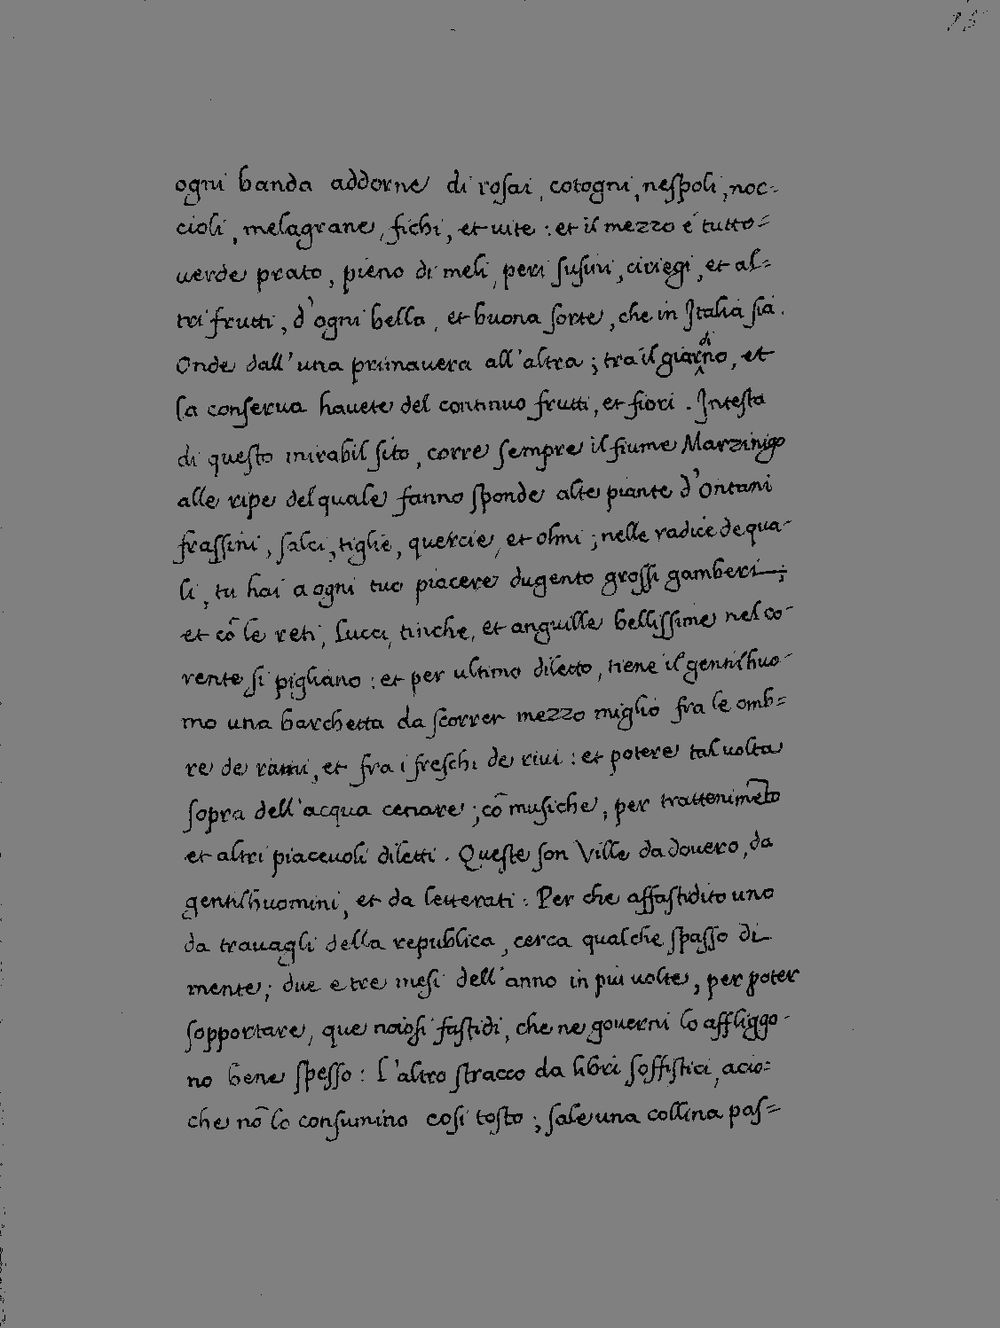 15
ogni banda addorne di rosai, cotogni, nespoli, noc-
cioli, melagrane, fichi, et uite : et il mezzo é tutto=
uerde prato, pieno di meli, peri susini, ciriegi, et al=
tri frutti, d'ogni bella, et buona sorte, che in Italia sia.
di
Onde dall'una primauera all'altra; tra il giarno, et
la conserua hauete del continuo frutti, et fiori. Intesta
di questo mirabil sito, corre sempre il fiume Marzinigo
alle ripe del quale fanno sponde alte piante d'ontani
frassini, salci, tiglie, quercie, et olmi; nelle radice de qua-
li, tu hai a ogni tuo piacere dugento grossi gamberi;
et cō le reti, Lucci, tinche, et anguille bellissime nel co-
rente si pigliano : et per ultimo diletto, tiene il gentilhuo-
mo una barchetta da scorrer mezzo miglio fra le omb=
re de rami, et fra i freschi de riui : et potere tal uolta
sopra dell'acqua cenare; cō musiche, per trattenimēto
et altri piaceuoli diletti. Queste son Ville da douero, da
gentilhuomini, et da letterati : Per che affastidito uno
da trauagli della republica, cerca qualche spasso di
mente; due e tre mesi dell'anno in piu uolte, per poter
sopportare, que noiosi fastidi, che ne gouerni lo affliggo-
no bene spesso : L'altro stracco da libri soffistici, acio=
che nō lo consumino cosi tosto; sale una collina pas=